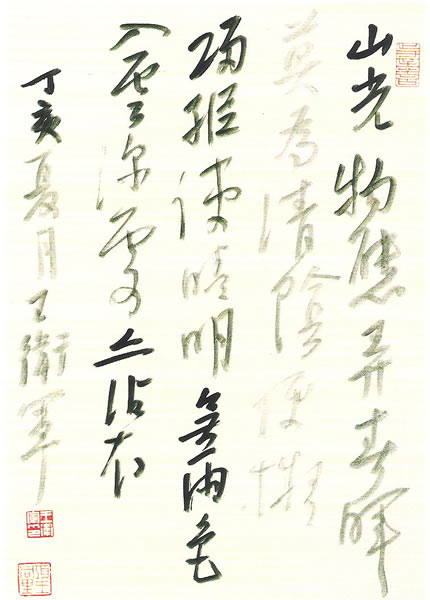 山光物態弄春暉
莫為清陰便擬
歸縱使晴明無雨色
入雲深處亦沾衣
丁亥夏月王衛軍